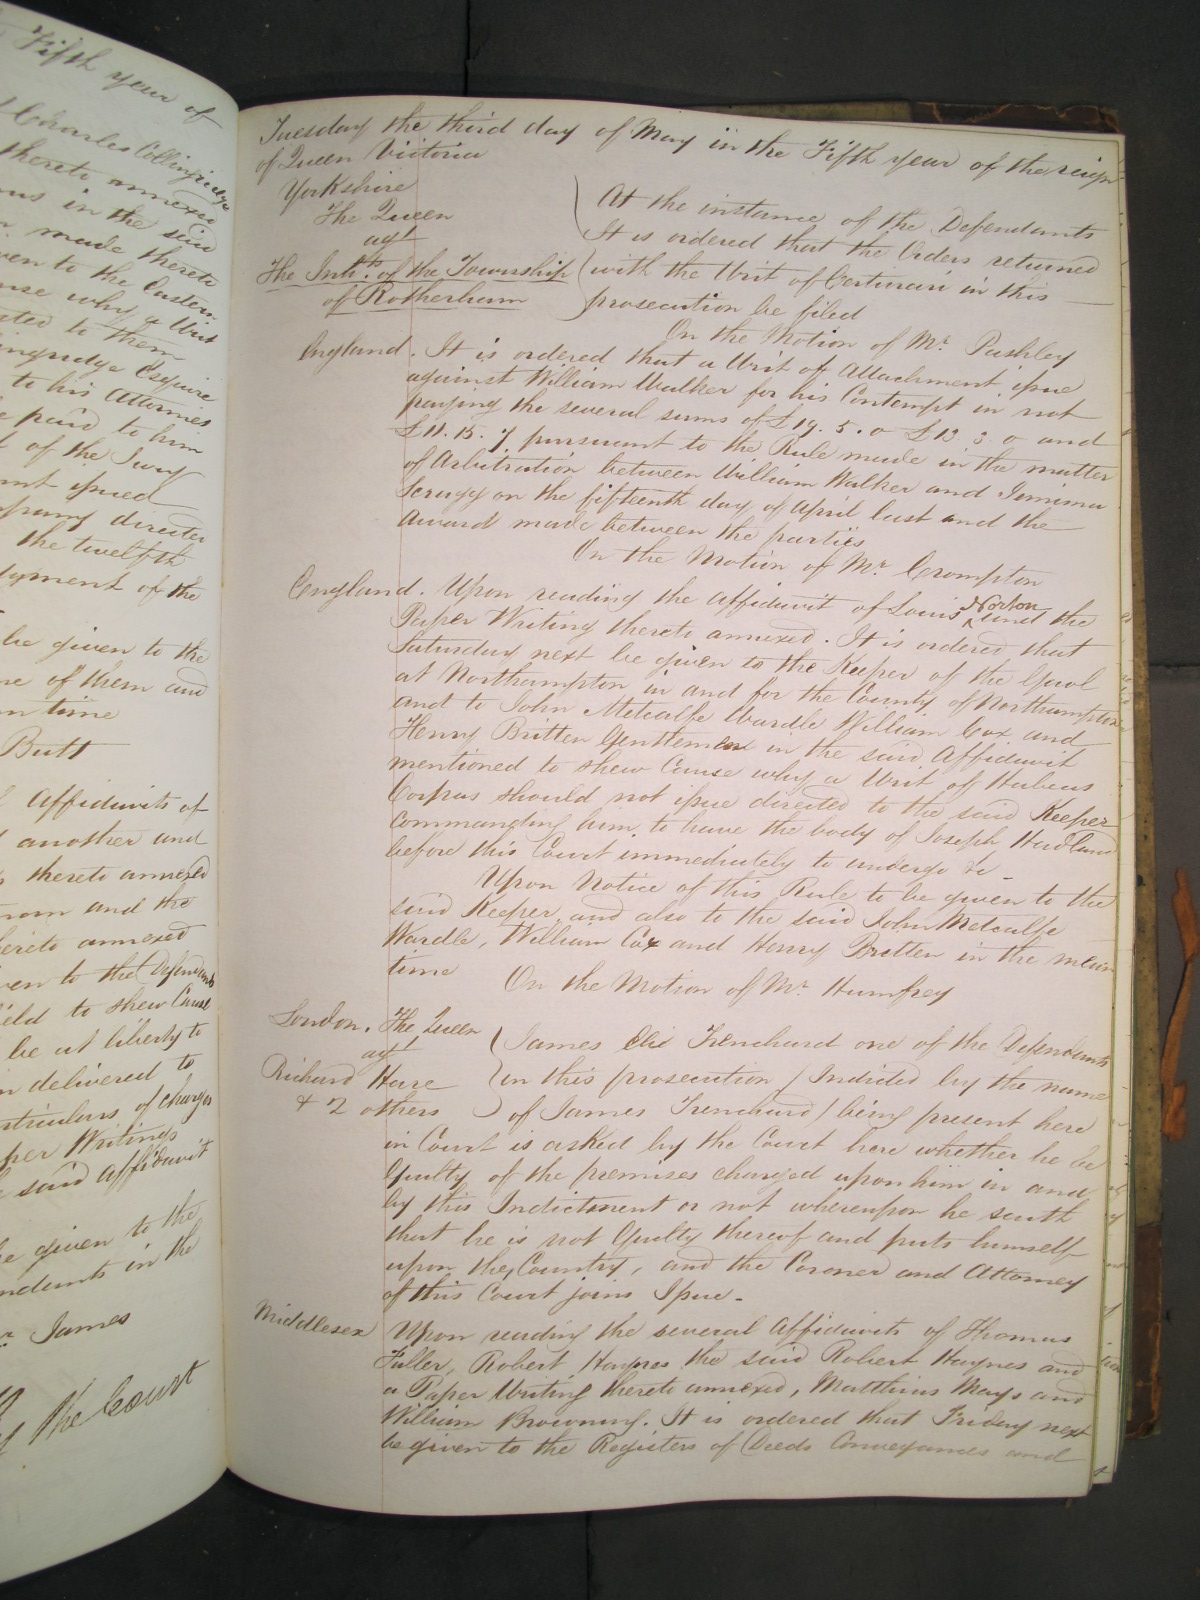 Fifth year of
Charles Collingridge
thereto annexed
in the said
made thereto
to the
why a Writ
to them
Esquire
to his Attornies
paid to him
of the Jury
issued
directed
the twelfth
of the
be given to the
of them and
time
Butt
Affidavits of
another and
thereto annexed
and the
annexed
to the Defendants
to shew Cause
be at liberty to
delivered to
of charges
Writings
said affidavit
be given to the
in the
James
The Court
Tuesday the third day of May in the Fifth year of the reign
of Queen Victoria
Yorkshire
The Queen
agt
The Inhts. of the Township
of Rotherham
At the instance of the Defendants
It is ordered that the Orders returned
with the Writ of Certiorari in this
prosecution be filed
On the Motion of Mr. Pashley
England. It is ordered that a Writ of Attachment issue
against William Walker for his Contempt in not
paying the several sums of £19. 5. 0 £13 3 0 and
£11. 15. 7 pursuant to the Rule made in the matter
of Arbitration between William Walker and Jemima
on the fifteenth day of April last and the
Award made between the parties
On the Motion of Mr. Crompton
England. Upon reading the affidavit of Louis Norton and the
Paper Writing thereto annexed. It is ordered that
Saturday next be given to the Keeper of the Gaol
at Northampton in and for the County of Northampton
and to John Metcalfe Wardle William Cox and
Henry Britten Gentlemen in the said Affidavit
mentioned to shew Cause why a Writ of Habeas
Corpus should not issue directed to the said Keeper
Commanding him to have the body of Joseph
before this Court immediately to undergo &c -
Upon Notice of this Rule to be given to the
said Keeper, and also to the said John Metcalfe
Wardle, William Cox and Henry Britten in the mean
time On the Motion of Mr. Humfrey
London. The Queen
agt
Richard Hare
& 2 others
James Trenchard one of the Defendants
in this prosecution (Indicted by the name
of James Trenchard) being present here
in Court is asked by the Court here whether he be
Guilty of the premises charged upon him in and
by this Indictment or not whereupon he saith
that he is not Guilty thereof and puts himself
upon the Country, and the Coroner and Attorney
of this Court joins Issue -
Middlesex Upon reading the several Affidavits of Thomas
Fuller, Robert Haynes the said Robert Haynes and
a Paper Writing thereto annexed, Matthias Mays and
William Browning. It is ordered that Friday next
be given to the Registers of Deeds Conveyances and